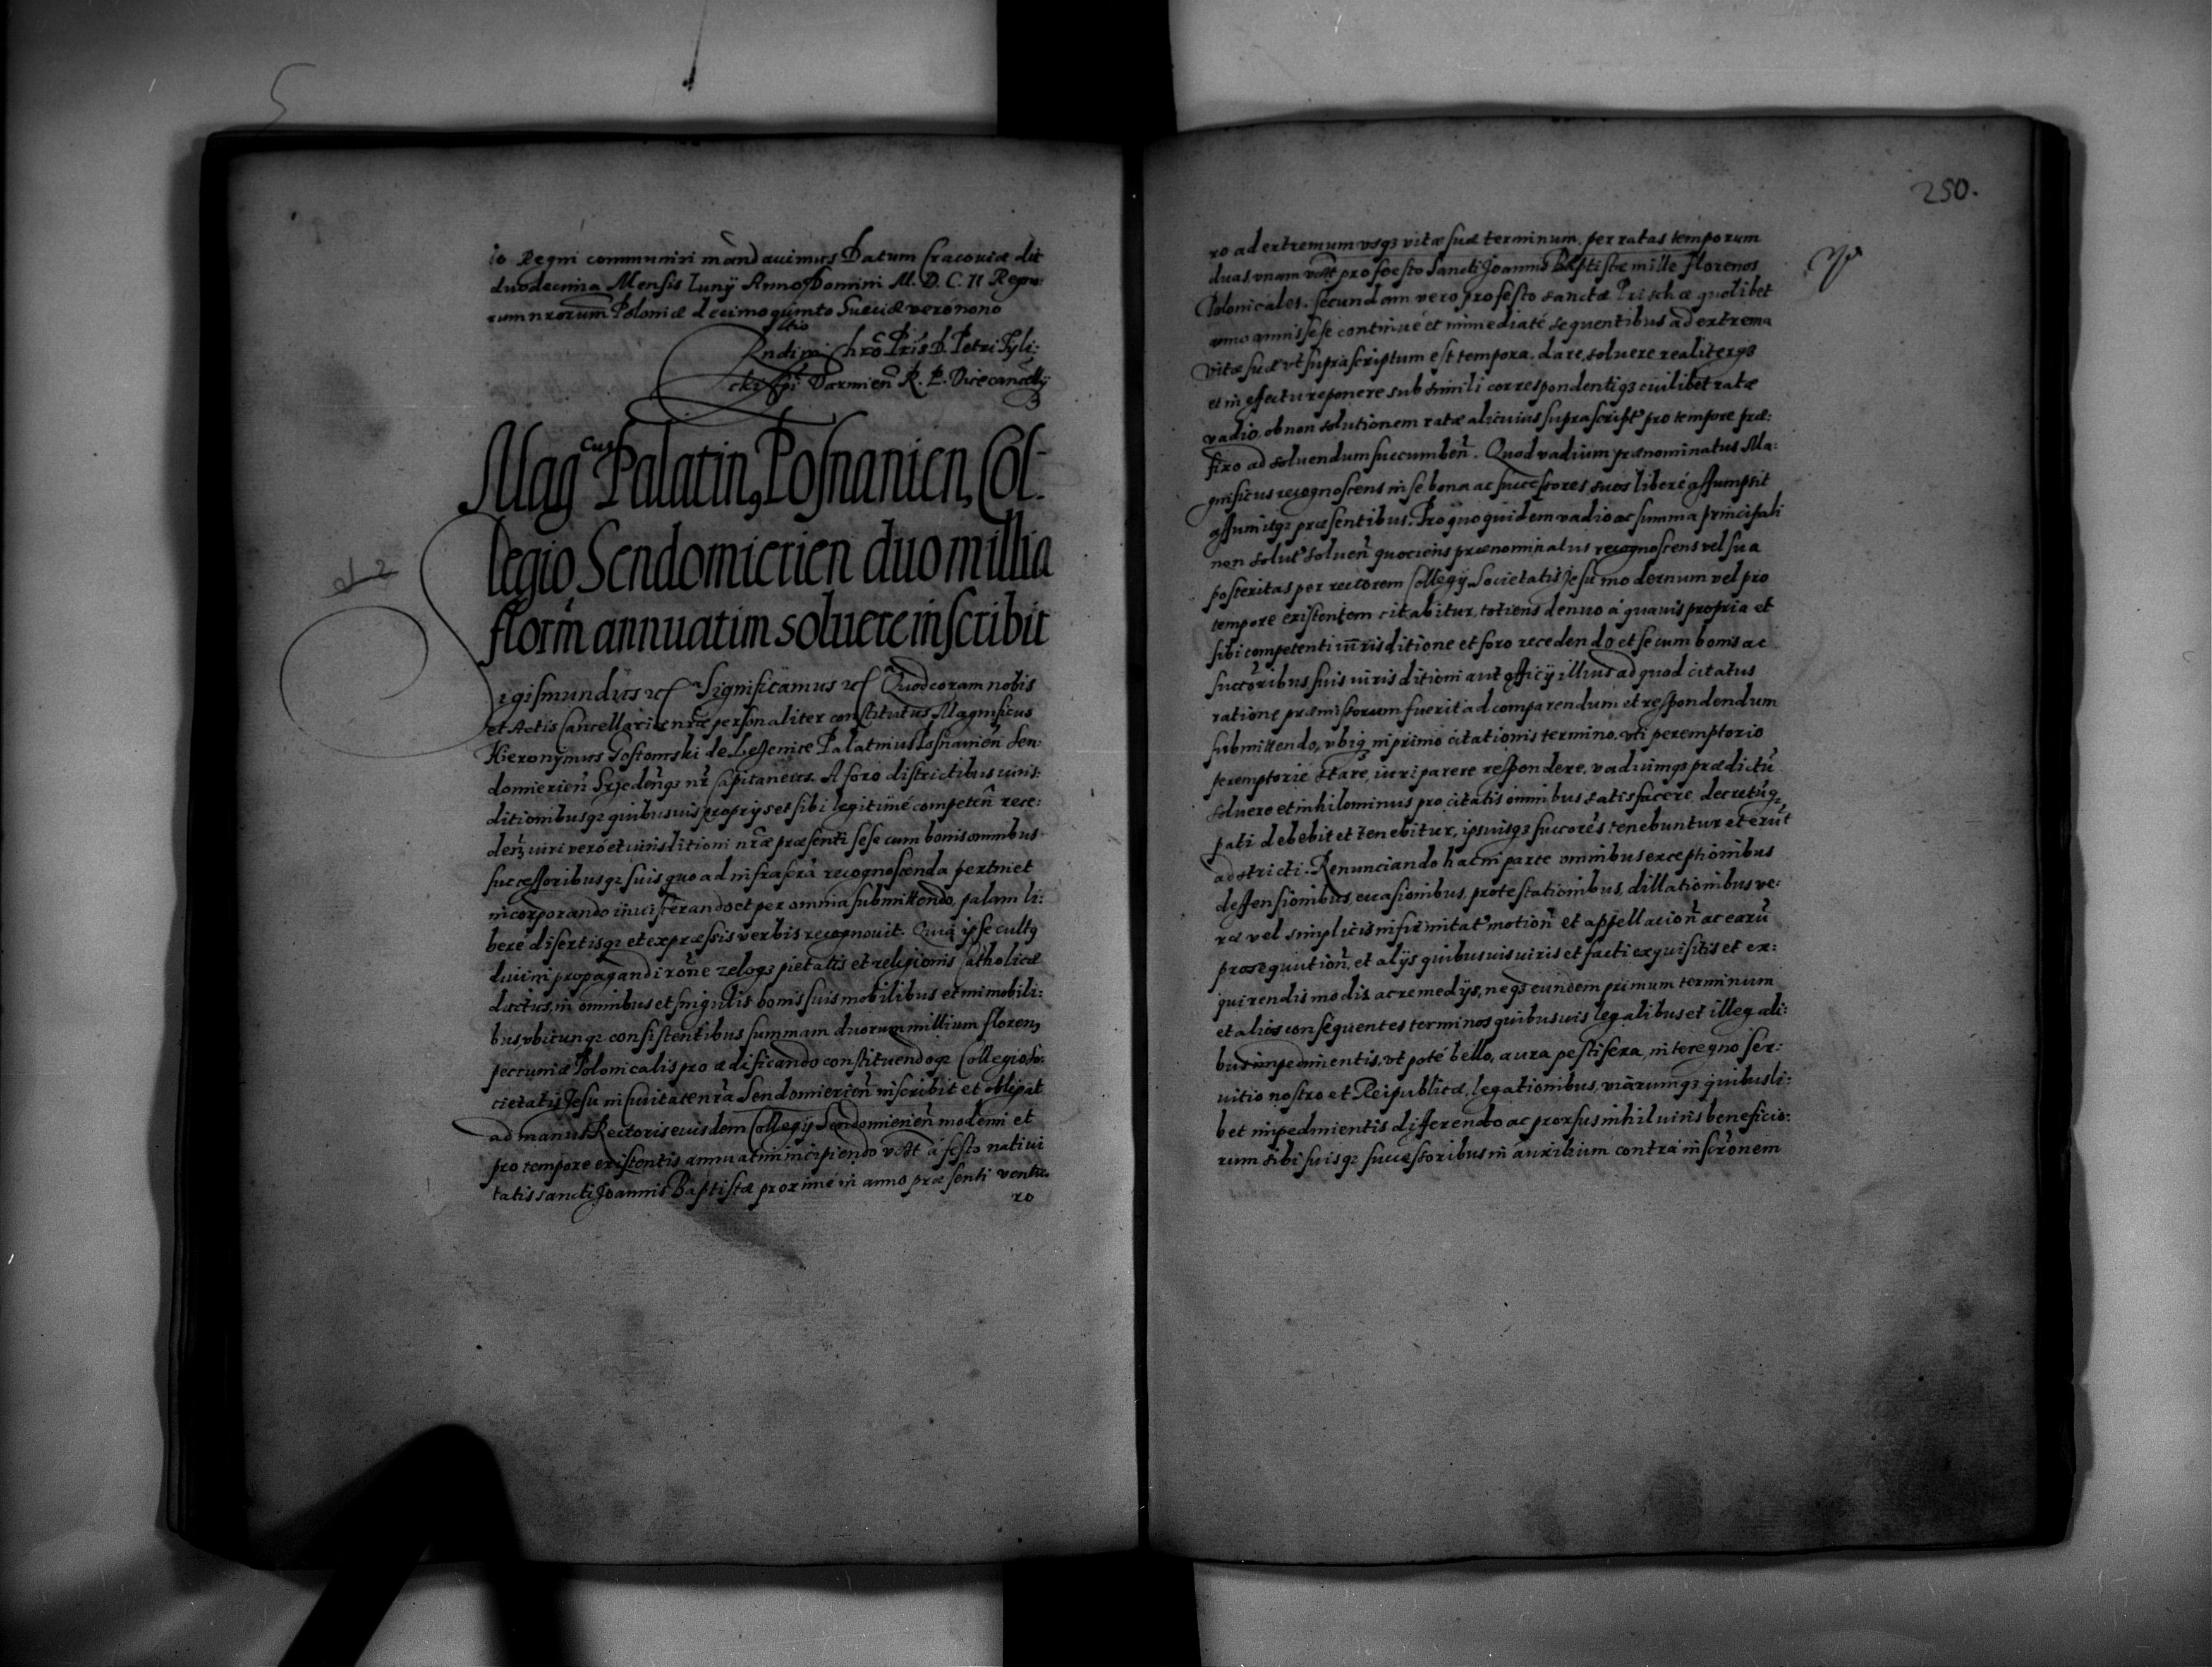 io Regni communiri mandauimus Datum Cracouiæ die
duodecima Mensis Iunÿ Anno Domini M.D.C.II Regno:
rum nrorum Poloniæ decimoquinto Sueciæ vero nono
Rndi in Chro Pris D. Petri Tyli:
cki Epi Varmien R. P. Vicecancellÿ
Magcus Palatin9 Posnanien, Col-
legio Sendomierien duo millia
florm annuatim soluere inscribit
Sigismundus etc Significamus etc Quod coram nobis
et Actis Cancellariæ nræ personaliter constitutus Magnificus
Hieronymus Gostomski de Lezenice Palatinus Posnanien Sen:
domierien Srzedenq3 nr Capitaneus. A foro districtibus iuris:
ditionibusq3 quibusuis proprÿs et sibi legitime competen rece:
den3 iuri vero et iurisditioni nræ præsenti sese cum bonis omnibus
successoribusq3 suis quo ad infrascra recognoscenda pertinet
incorporando inuiscerando et per omnia submittendo, palam li:
bere disertisq3 et expræssis verbis recognouit. Quia ipse cult9
diuini propagandi rone zeloq3 pietatis et religionis Catholicæ
ductus, in omnibus et singulis bonis suis mobilibus et immobili:
bus, vbicunq3 consistentibus summam duorum millium floren,
pecuniæ Polonicalis pro ædificando constituendoq3 Collegio So:
cietatis Jesu in Ciuitate nra Sendomierien inscribit et obligat
ad manus Rectoris eiusdem Collegÿ Sendomierien moderni et
pro tempore existentis annuatim incipiendo vidt a festo natiui
tatis sancti Joannis Baptistæ proxime in anno præsenti ventu:
ro
250.
ro ad extremum vsq3 vitæ suæ terminum, per ratas temporum
duas, vnam vidt pro foesto Sancti Joannis Baptistæ mille florenos
Polonicales, secundam vero pro festo sanctæ Prischæ quolibet
anno annis sese continue et immediate sequentibus ad extrema
vitæ suæ vt suprascriptum est tempora, dare, soluere realiterq3
et in effectu reponere sub simili correspondentiq3 cuilibet ratæ
vadio, ob non solutionem ratæ alicuius suprascript9 pro tempore præ:
fixo ad soluendum succumben. Quod vadium prænominatus Ma:
gnificus recognoscens in se bona ac successores suos libere assumpsit
assumitq3 præsentibus. Pro quo quidem vadio ac summa principali
non solut9 soluen quociens prænominatus recognoscens vel sua
posteritas per rectorem Collegÿ Societatis Jesu modernum vel pro
tempore existentem citabitur, totiens denuo a quauis propria et
sibi competenti iurisditione et foro recedendo et se cum bonis ac
succoribus suis iurisditioni aut officÿ illius ad quod citatus
ratione præmissorum fuerit ad comparendum et respondendum
submittendo, vbiq3 in primo citationis termino, vti peremptorio
peremptorie stare, iuri parere respondere, vadiumq3 prædictu
soluere et nihilominus pro citatis omnibus satisfacere, decretuq3
pati debebit et tenebitur, ipsiusq3 succores tenebuntur et erut
adstricti. Renunciando hac in parte omnibus exceptionibus
deffensionibus, euasionibus, protestationibus, dillationibus ve:
ræ vel simplicis infirmitat9 motion et appellacion ac earu
prosequution, et alÿs quibusuis iuris et facti exquisitis et ex:
quirendis modis ac remedÿs, neq3 eundem primum terminum
et alios consequentes terminos quibusuis legalibus et illegali:
bus impedimentis, vt pote bello, aura pestifera, interregno ser:
uitio nostro et Reipublicæ, legationibus, viarumq3 quibusli:
bet impedimentis differendo ac prorsus nihil iuris beneficio:
rum sibi suisq3 successoribus in auxilium contra inscronem